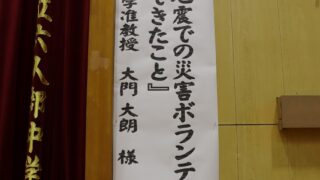 地震での災害ボランテ
できたこと』
学准教授 大門 大朗 様
立六人部中学